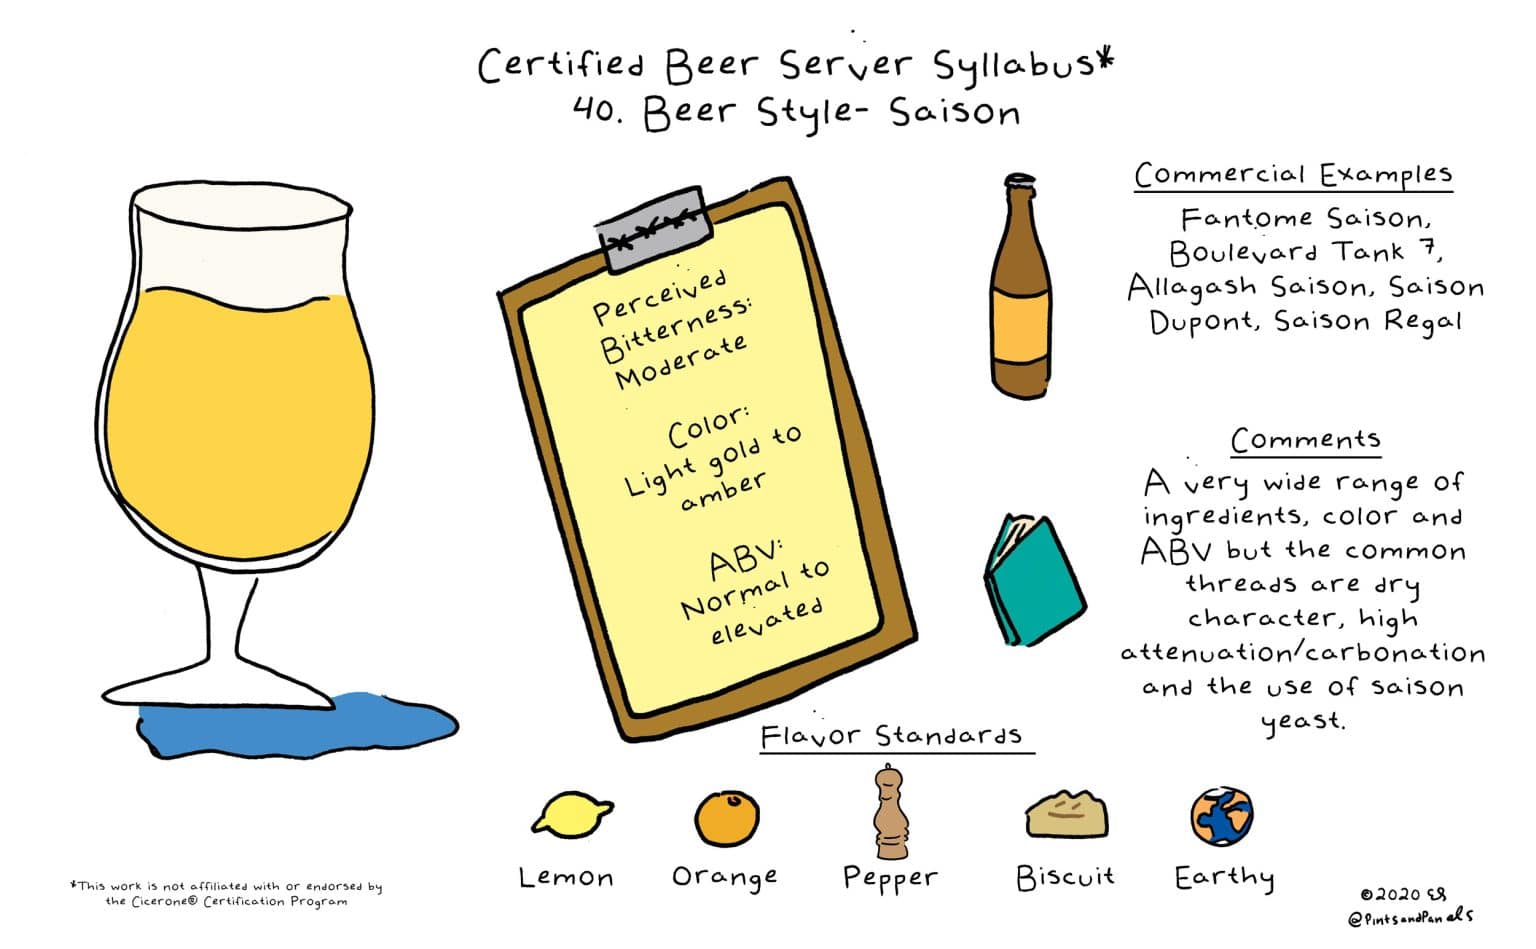 Certified Beer Server Syllabus*
40. Beer Style- Saison
Perceived
Bitterness:
Moderate
Color:
Light gold to
amber
ABV:
Normal to
elevated
Commercial Examples
Fantome Saison,
Boulevard Tank 7,
Allagash Saison, Saison
Dupont, Saison Regal
Comments
A very wide range of
ingredients, color and
ABV but the common
threads are dry
character, high
attenuation/carbonation
and the use of saison
yeast.
Flavor Standards
Lemon
Orange
Pepper
Biscuit
Earthy
*This work is not affiliated with or endorsed by
the Cicerone® Certification Program
©2020 ES
@PintsandPanels